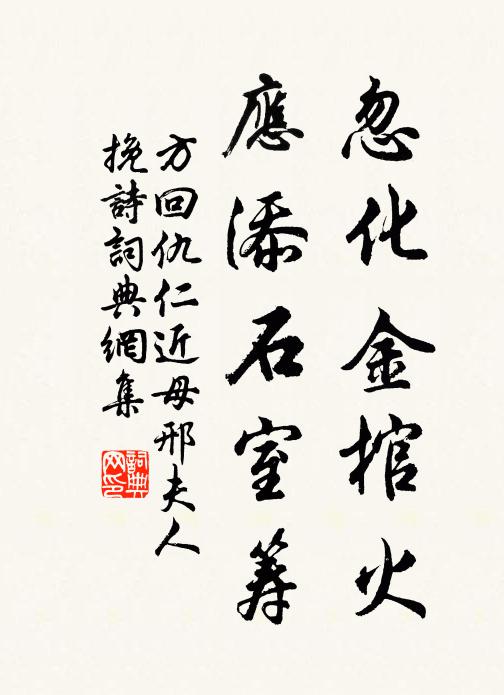 忽化金棺火
應添石室籌
方回仇仁近母邢夫人
挽詩詞典網集
詞典
网印